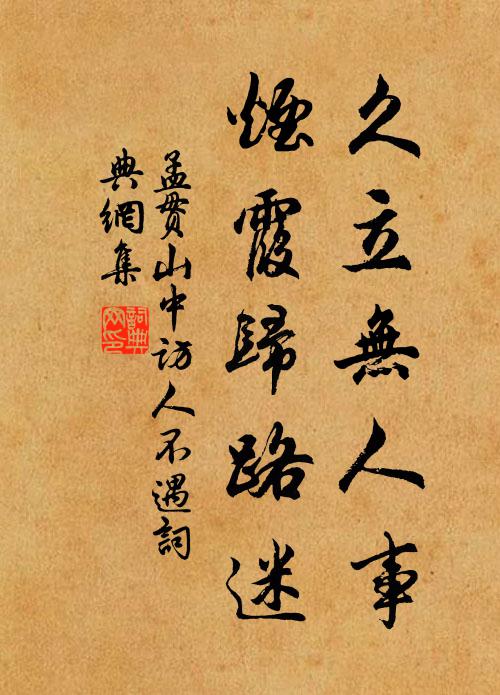 久立無人事
煙霞歸路迷
孟貫山中訪人不遇詞
典網集
詞典
网印